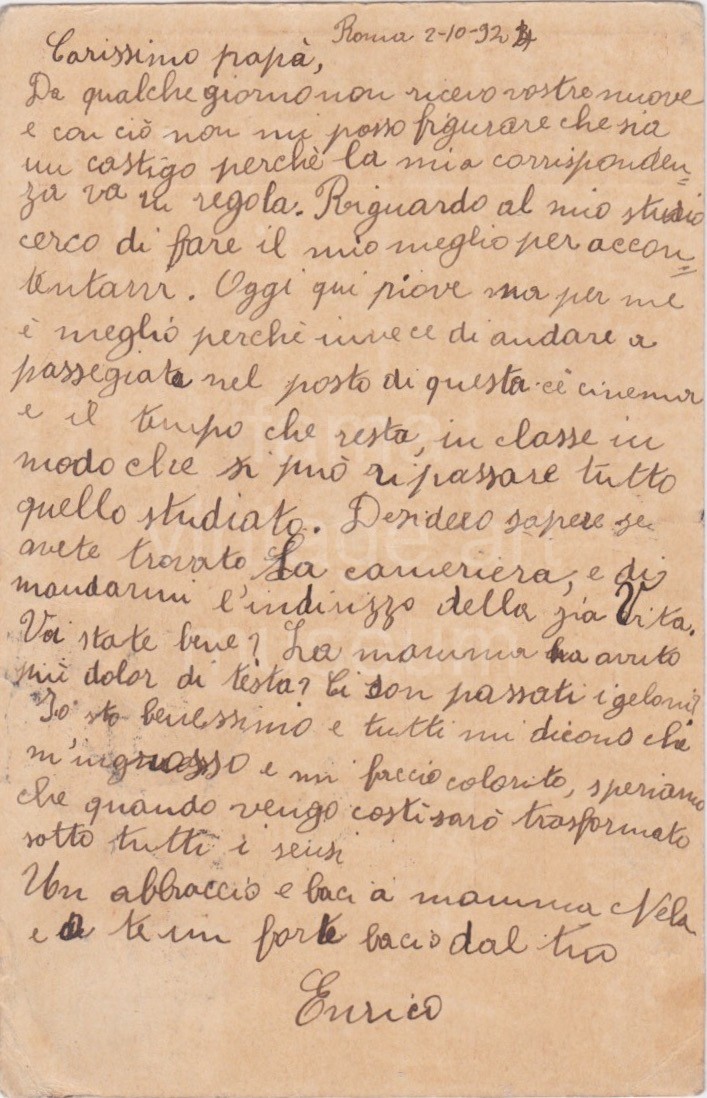 Roma 2-10-92
Carissimo papà,
Da qualche giorno non ricevo vostre nuove
e con ciò non mi posso figurare che sia
un castigo perchè la mia corrisponden=
za va in regola. Riguardo al mio studio
cerco di fare il mio meglio per accon=
tentarvi. Oggi qui piove ma per me
è meglio perchè invece di andare a
passegiata nel posto di questa c'è cinema
e il tempo che resta, in classe in
modo che si può ripassare tutto
quello studiato. Desidero sapere se
avete trovato la cameriera, e di
mandarmi l'indirizzo della zia Vita.
Voi state bene? La mamma ha avuto
più dolor di testa? Ci son passati i geloni?
Io sto benessimo e tutti mi dicono che
m'ingrosso e mi faccio colorito, speriamo
che quando vengo costi sarò trasformato
sotto tutti i sensi
Un abbraccio e baci a mamma Nela
e a te un forte bacio dal tuo
Enrico
vintage art
museum